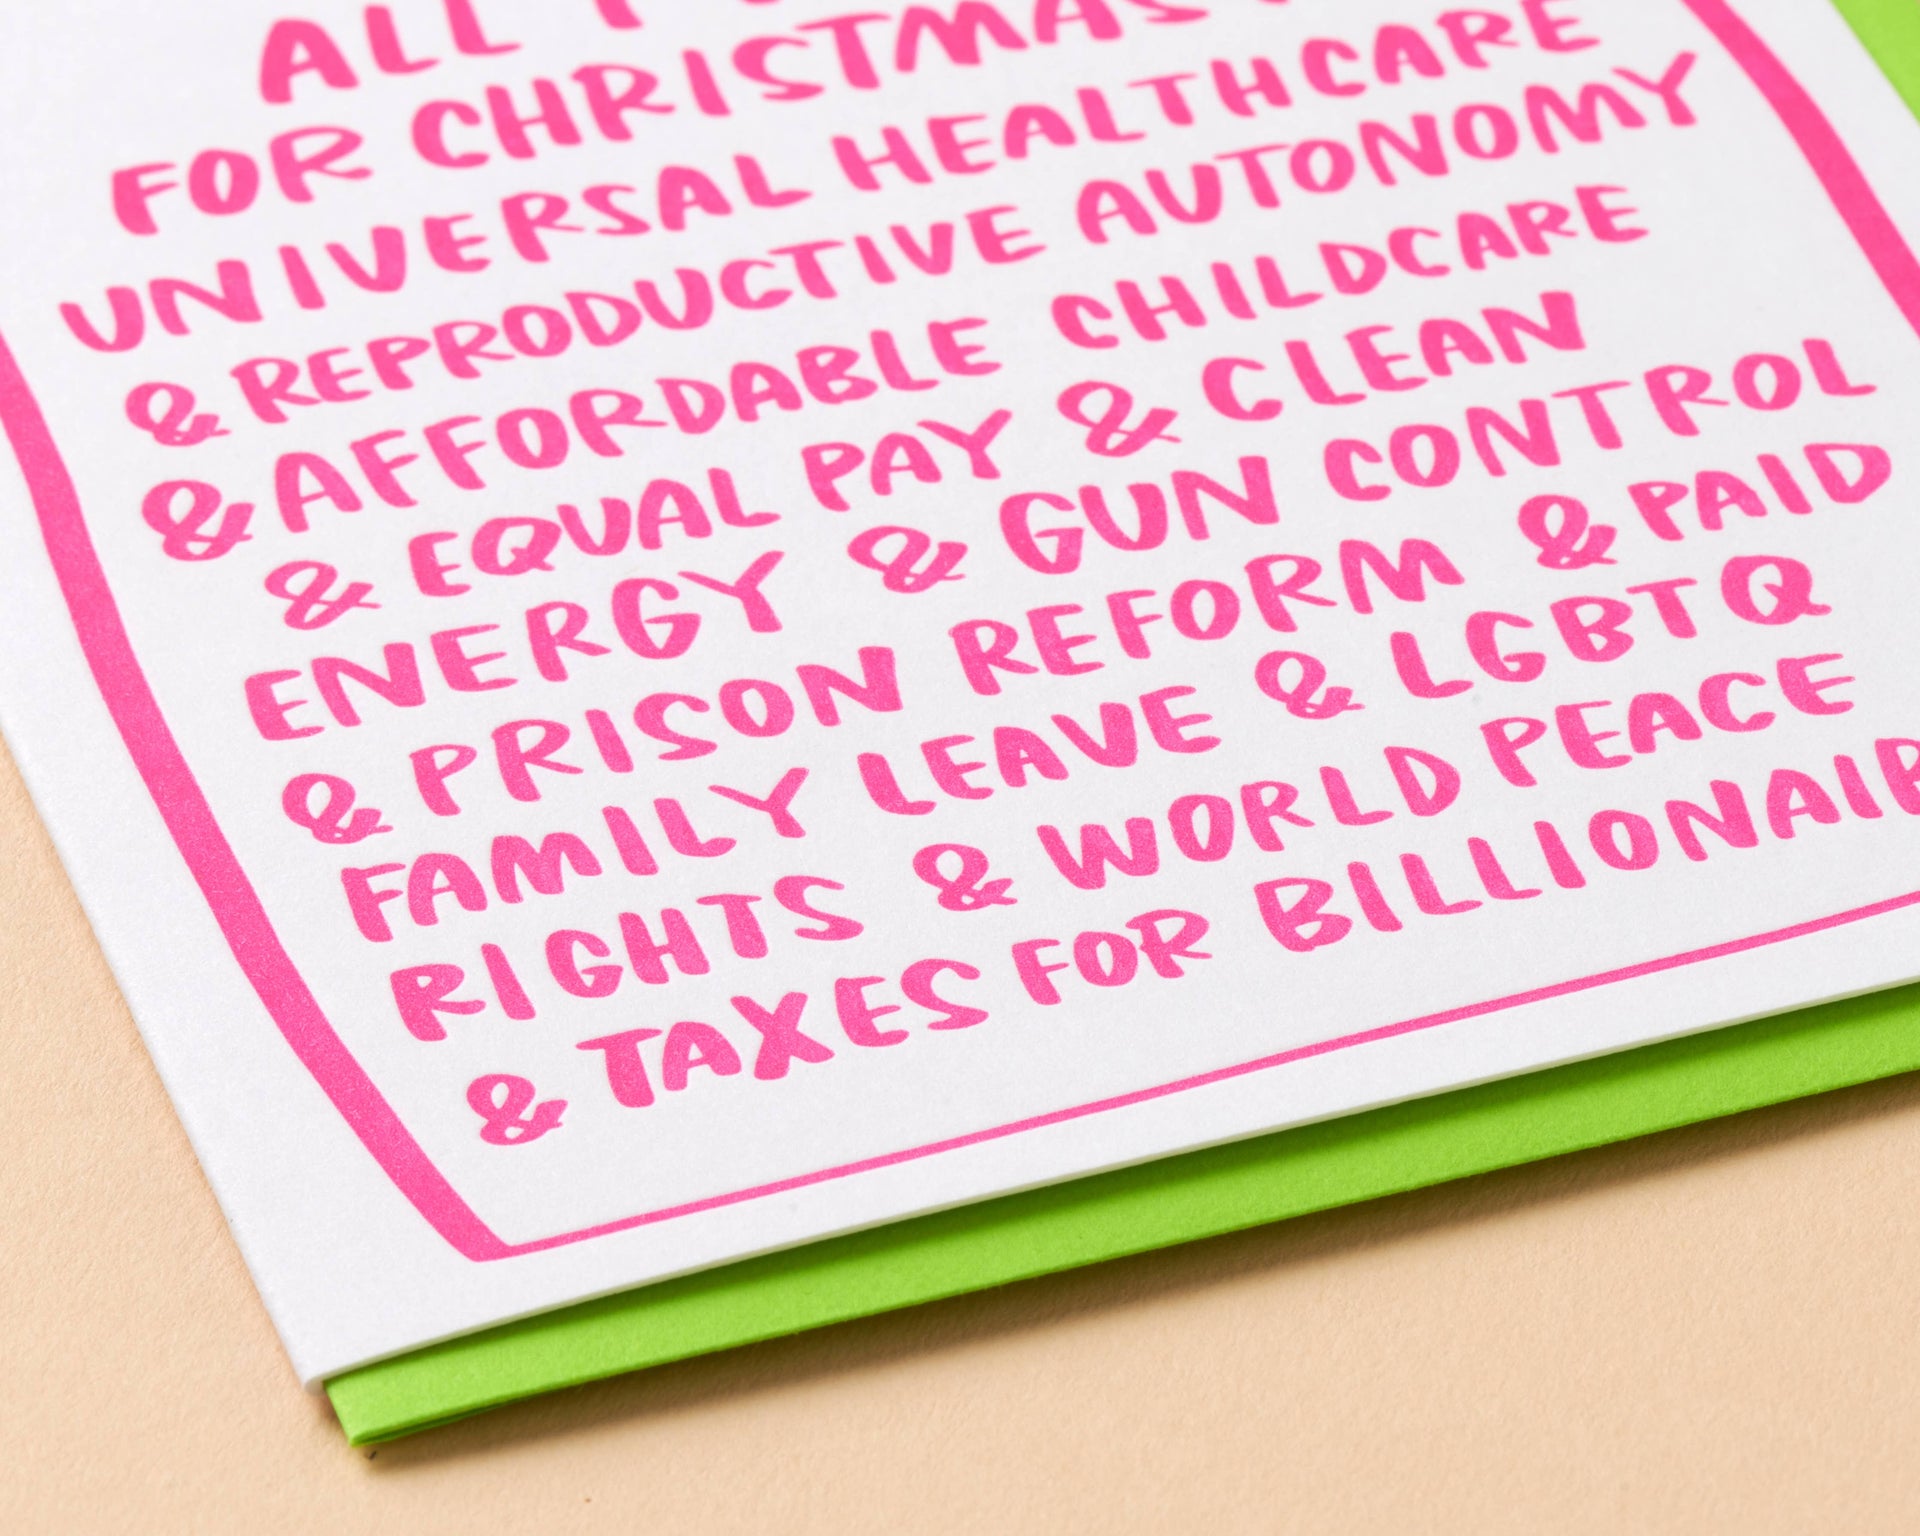 ALL I
FOR CHRISTMAS
UNIVERSAL HEALTHCARE
& REPRODUCTIVE AUTONOMY
& AFFORDABLE CHILDCARE
& EQUAL PAY & CLEAN
ENERGY & GUN CONTROL
& PRISON REFORM & PAID
FAMILY LEAVE & LGBTQ
RIGHTS & WORLD PEACE
& TAXES FOR